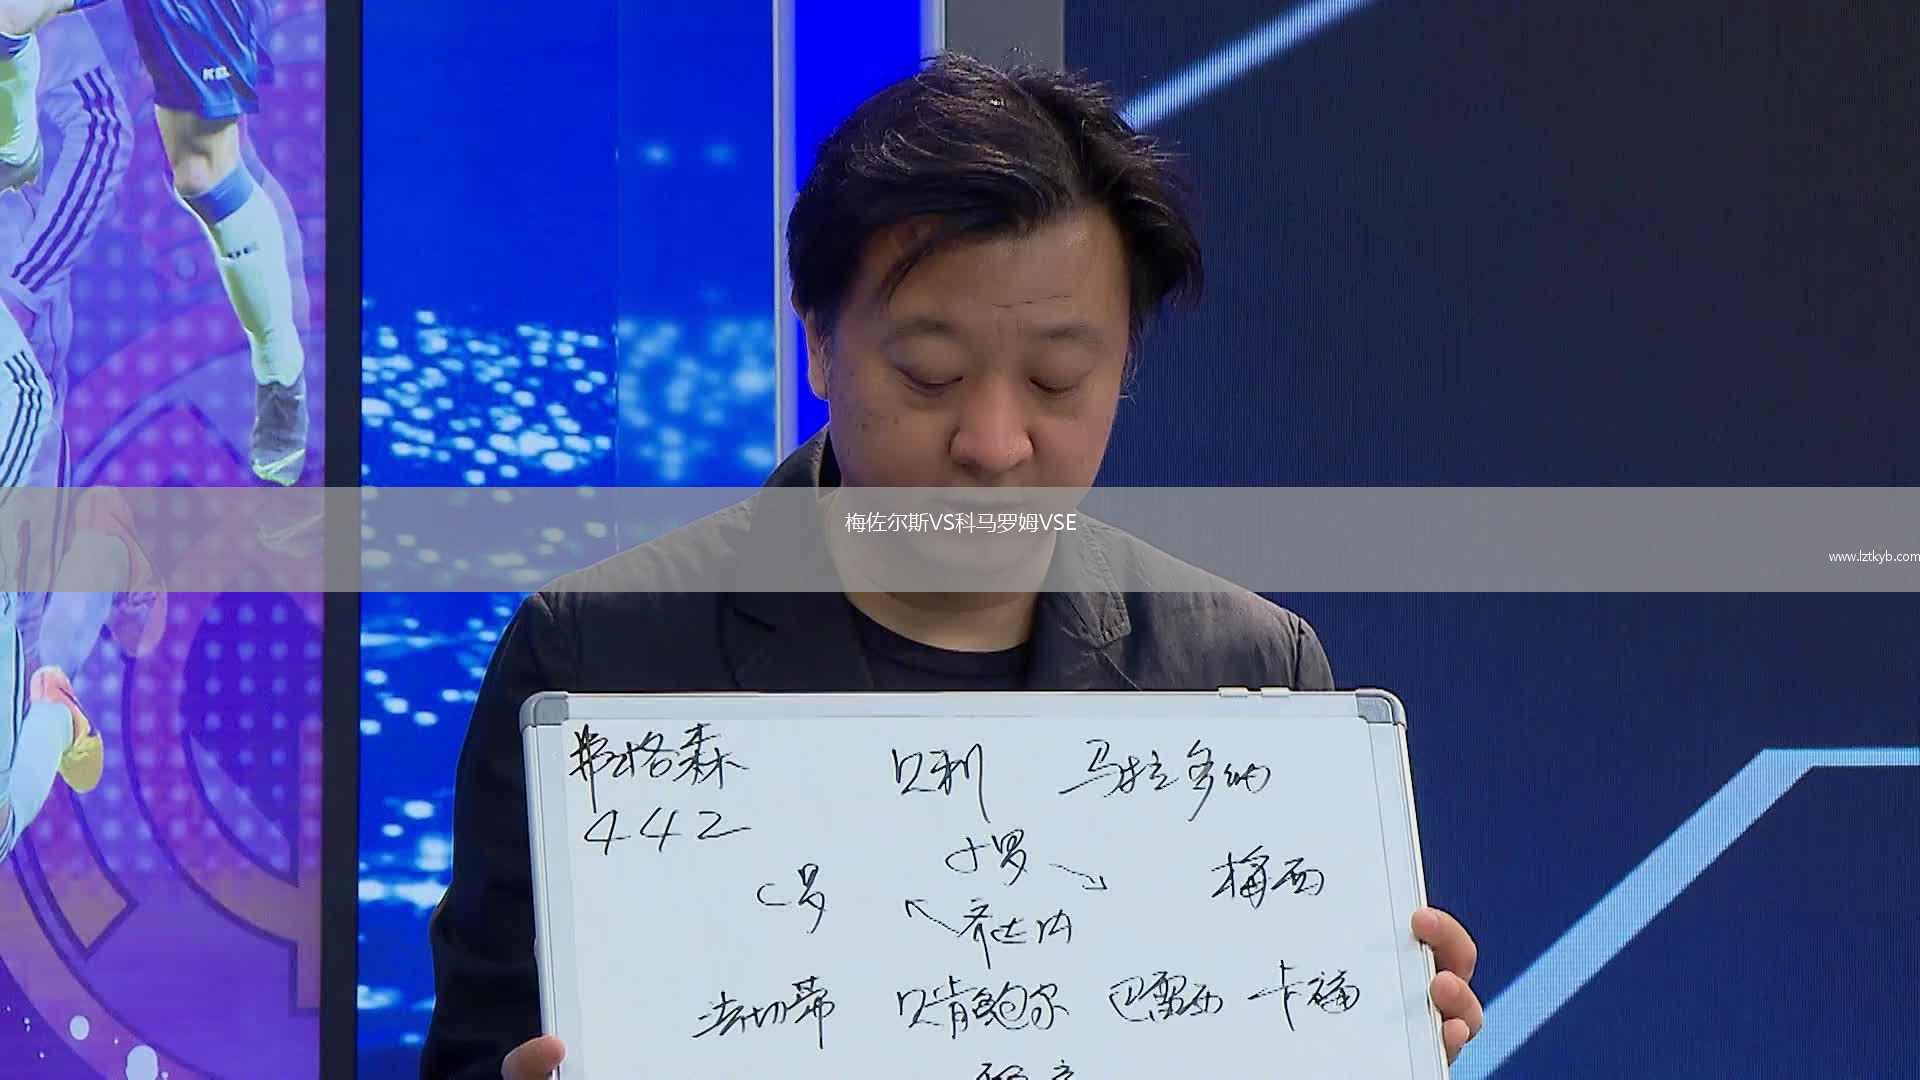 梅佐尔斯VS科马罗姆VSE
www.lztkyb.com
弗格森 贝利 马拉多纳
442
小罗
C罗 梅西
齐达内
法切蒂 贝肯鲍尔 巴雷西 卡福
KEL